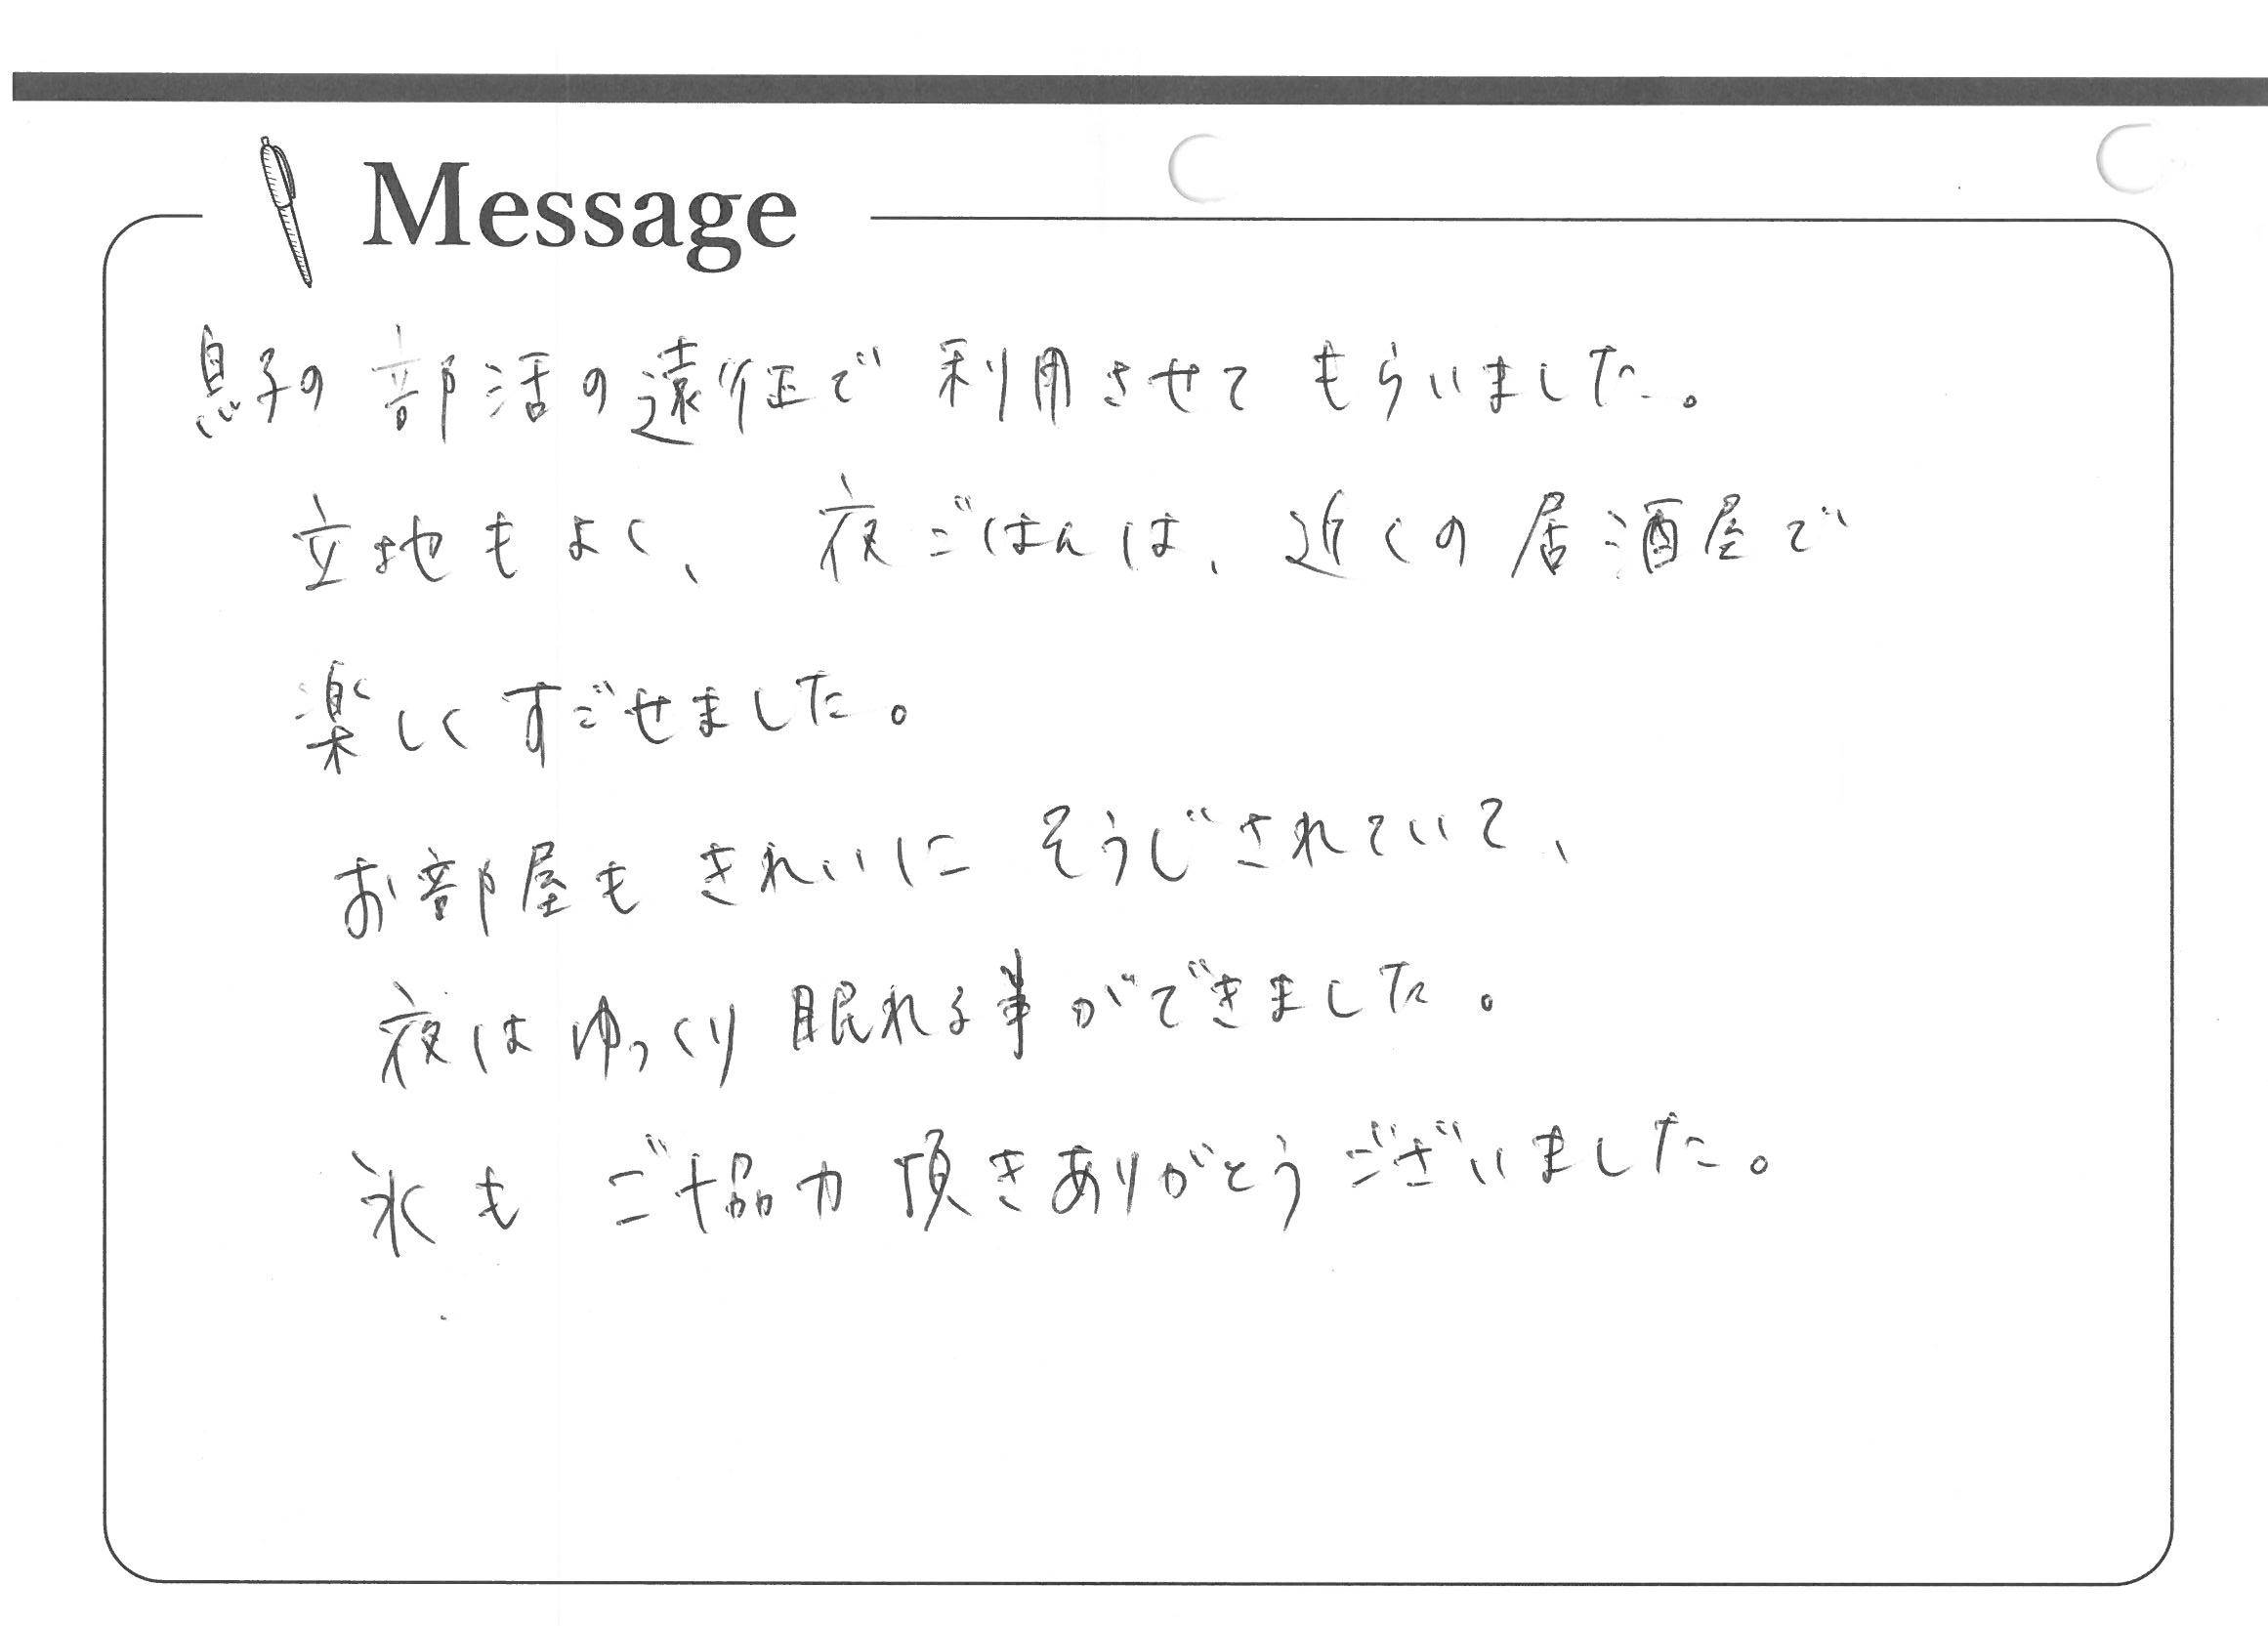 Message
息子の部活の遠征で利用させてもらいました。
立地もよく、夜ごはんは、近くの居酒屋で
楽しくすごせました。
お部屋もきれいにそうじされていて、
夜はゆっくり眠れる事ができました。
氷もご協力頂きありがとうございました。